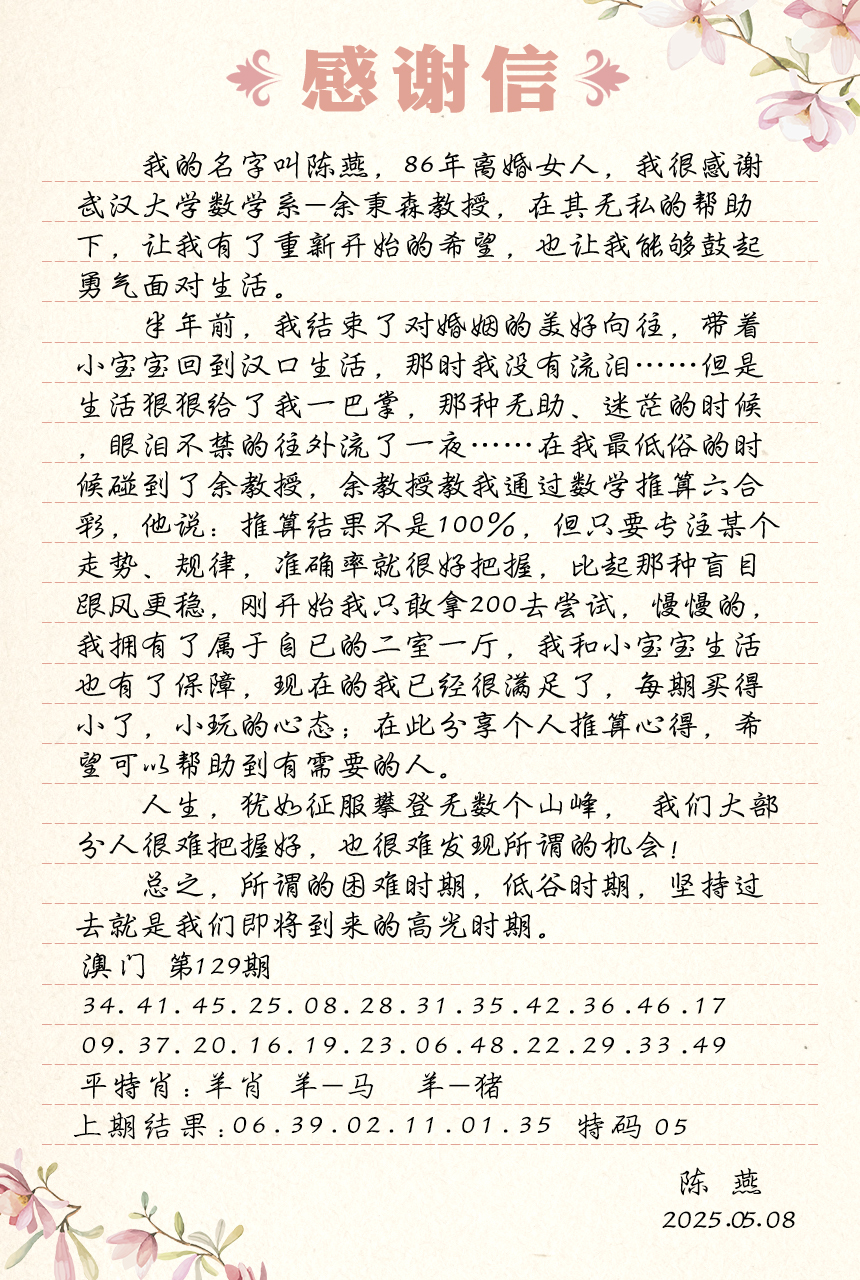 感谢信
我的名字叫陈燕，86年离婚女人，我很感谢
武汉大学数学系—余秉森教授，在其无私的帮助
下，让我有了重新开始的希望，也让我能够鼓起
勇气面对生活。
半年前，我结束了对婚姻的美好向往，带着
小宝宝回到汉口生活，那时我没有流泪……但是
生活狠狠给了我一巴掌，那种无助、迷茫的时候
，眼泪不禁的往外流了一夜……在我最低俗的时
候碰到了余教授，余教授教我通过数学推算六合
彩，他说：推算结果不是100%，但只要专注某个
走势、规律，准确率就很好把握，比起那种盲目
跟风更稳，刚开始我只敢拿200去尝试，慢慢的，
我拥有了属于自已的二室一厅，我和小宝宝生活
也有了保障，现在的我已经很满足了，每期买得
小了，小玩的心态；在此分享个人推算心得，希
望可以帮助到有需要的人。
人生，犹如征服攀登无数个山峰， 我们大部
分人很难把握好，也很难发现所谓的机会！
总之，所谓的困难时期，低谷时期，坚持过
去就是我们即将到来的高光时期。
澳门 第129期
34.41.45.25.08.28.31.35.42.36.46.17
09.37.20.16.19.23.06.48.22.29.33.49
平特肖：羊肖 羊—马 羊—猪
上期结果：06.39.02.11.01.35 特码 05
陈 燕
2025.05.08